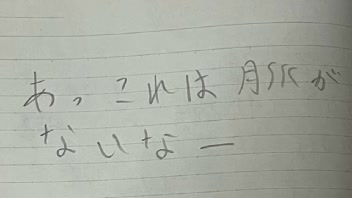 あっこれは脈が
ないなー